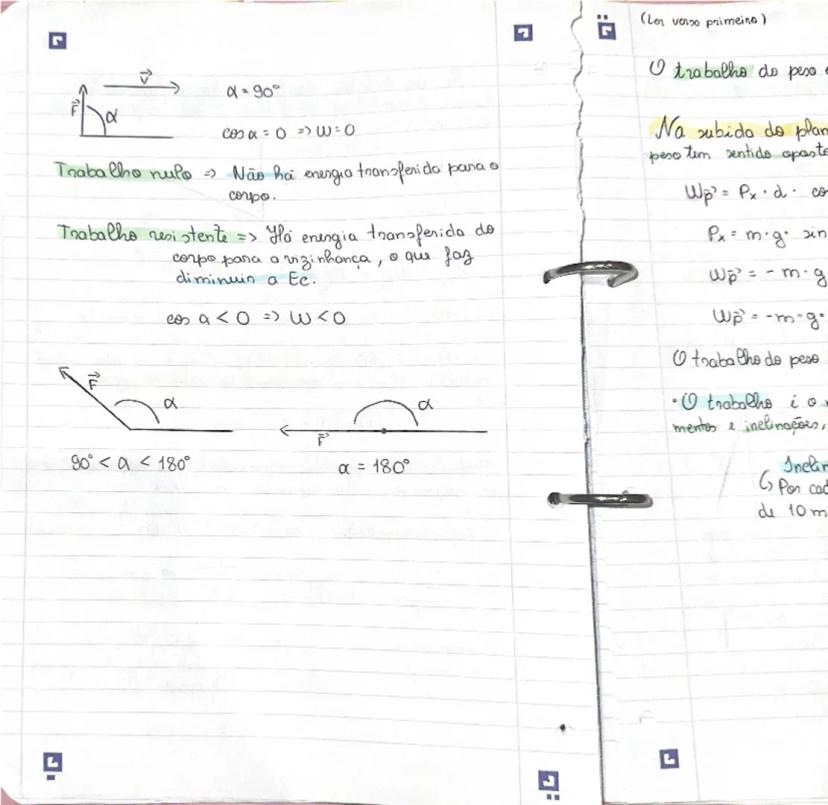 V
F
α
α = 90°
cos α = 0 => W = 0
Trabalho nulo => Não há energia transferida para o
corpo.
Trabalho resistente => Há energia transferida do
corpo para a vizinhança, o que faz
diminuir a Ec.
cos α < 0 => W < 0
F
α
90° < α < 180°
α
F
α = 180°
(Ler verso primeiro)
O trabalho do peso
Na subida do plan
peso tem sentido oposto
Wp = Px · d · co
Px = m · g · sin
Wp = - m · g
Wp = - m · g ·
O trabalho do peso
· O trabalho é o
mentos e inclinações,
Inclin
↳ Por cad
de 10 m